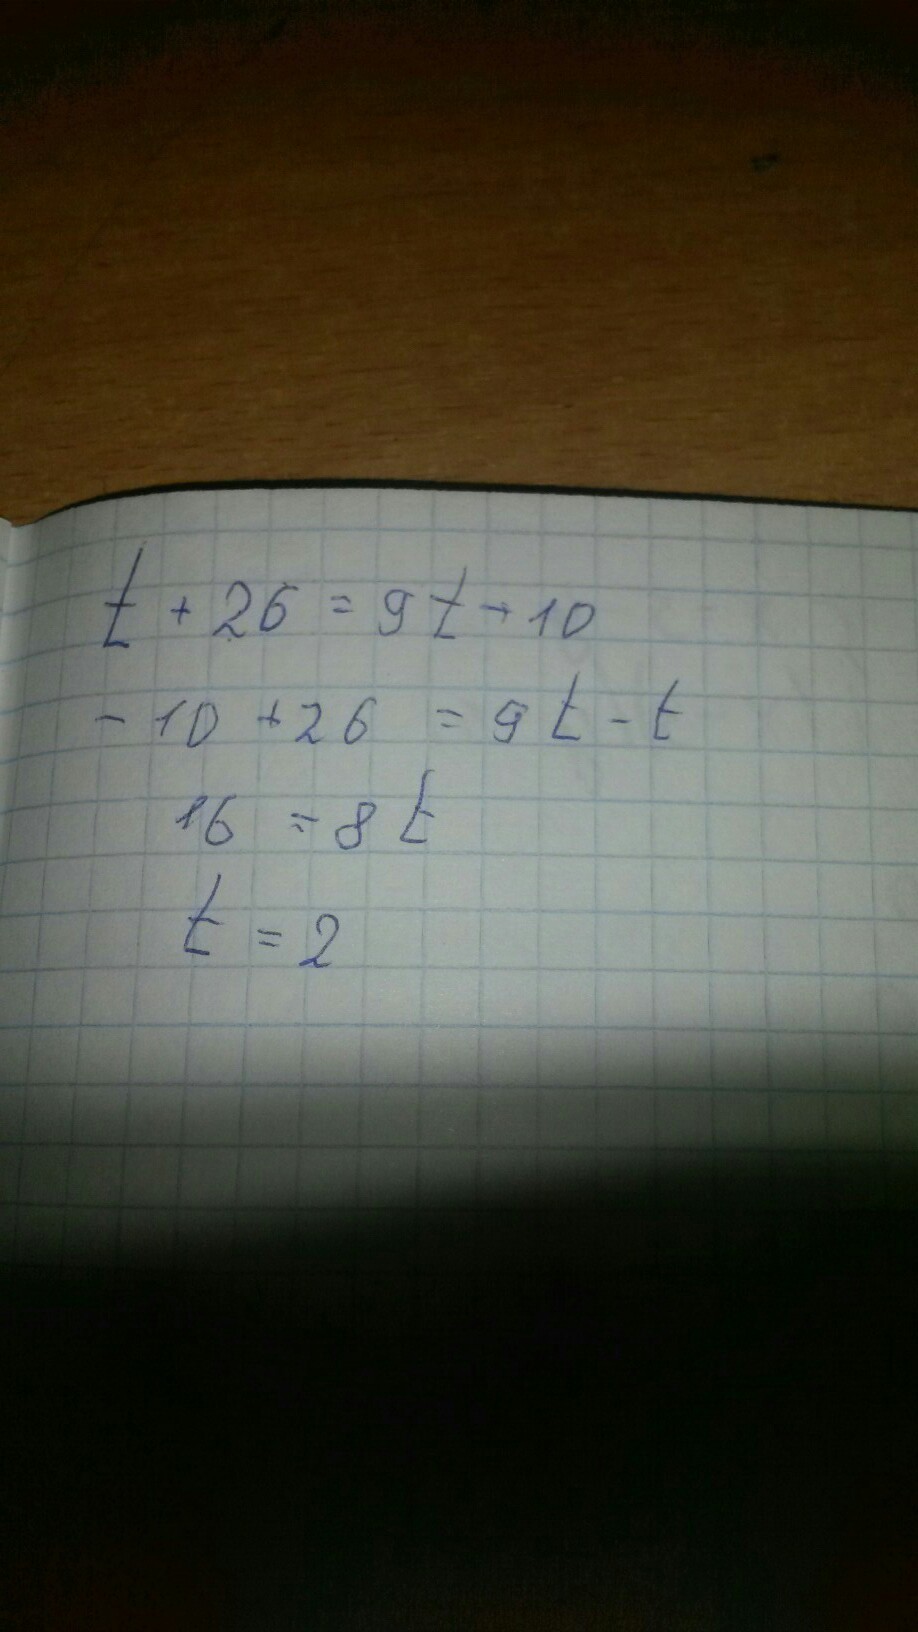 t + 26 = 9t + 10
- 10 + 26 = 9t - t
16 = 8t
t = 2